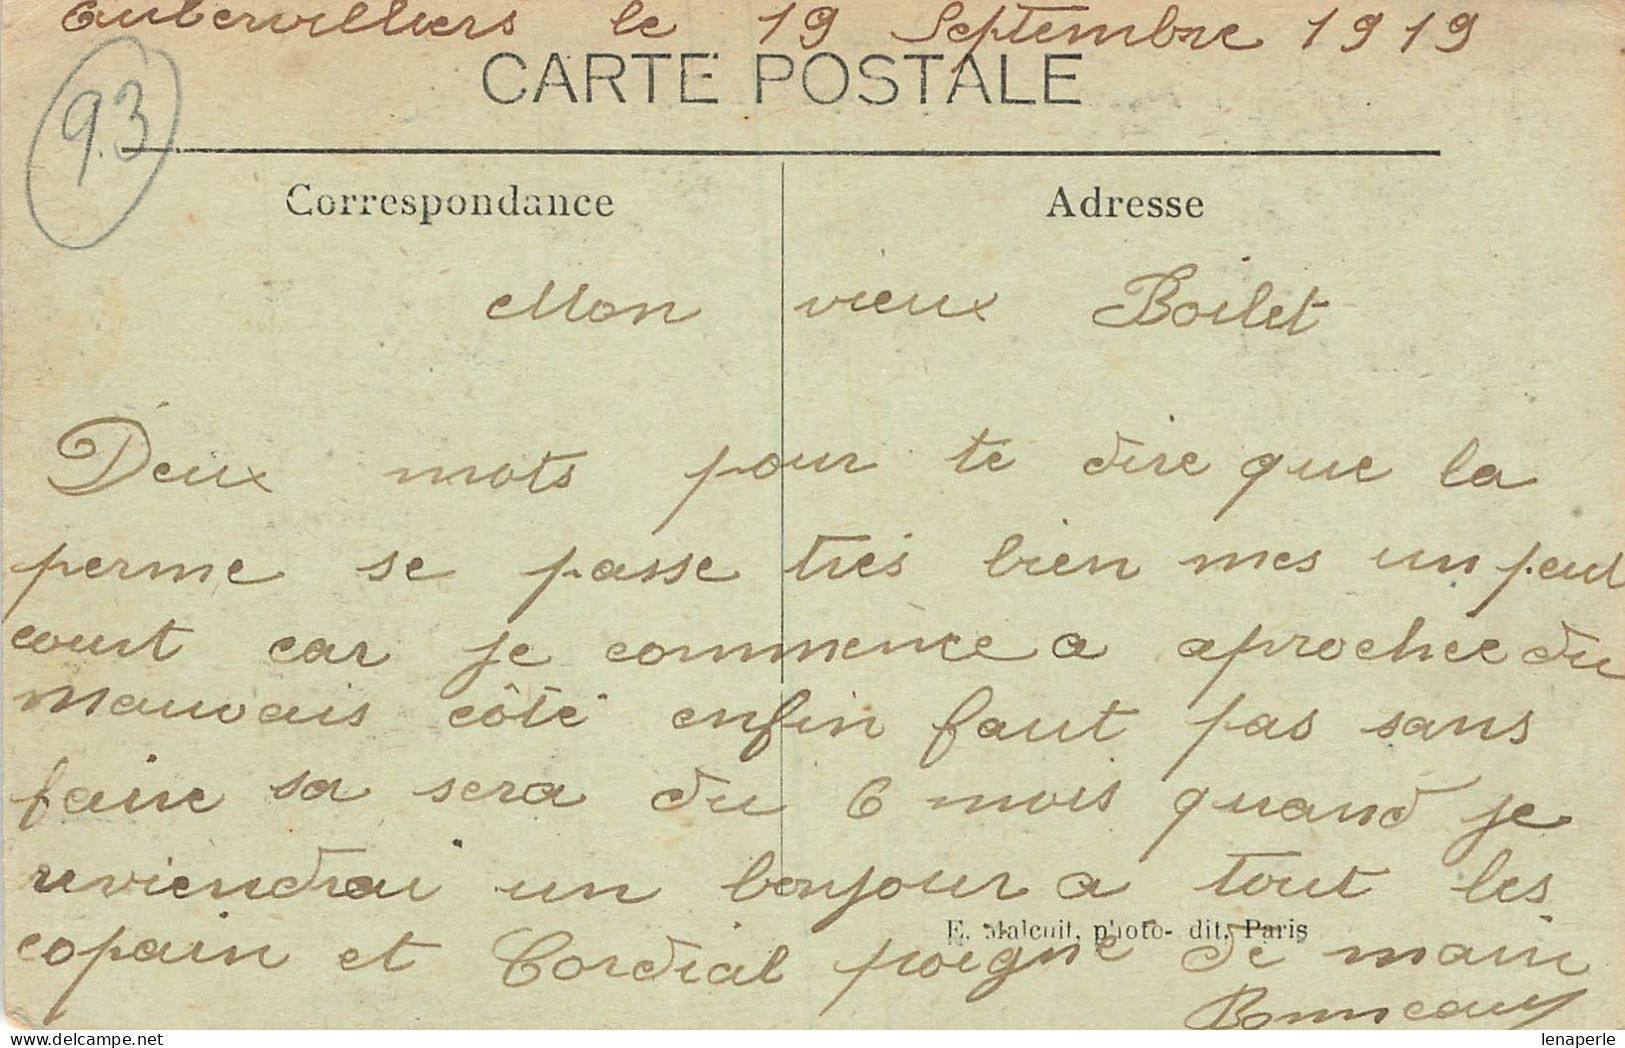 Aubervilliers le 19 Septembre 1919
CARTE POSTALE
93
Correspondance
Adresse
Mon vieux Boilet
Deux mots pour te dire que la
perme se passe trés bien mes un peut
court car je commence a aprochee du
mauvais côté enfin faut pas sans
faire sa sera du 6 mois quand je
reviendrai un bonjour a tout les
E. Malcuit, photo- dit, Paris
copain et Cordial poigne de main
Bonneau
lenaperle